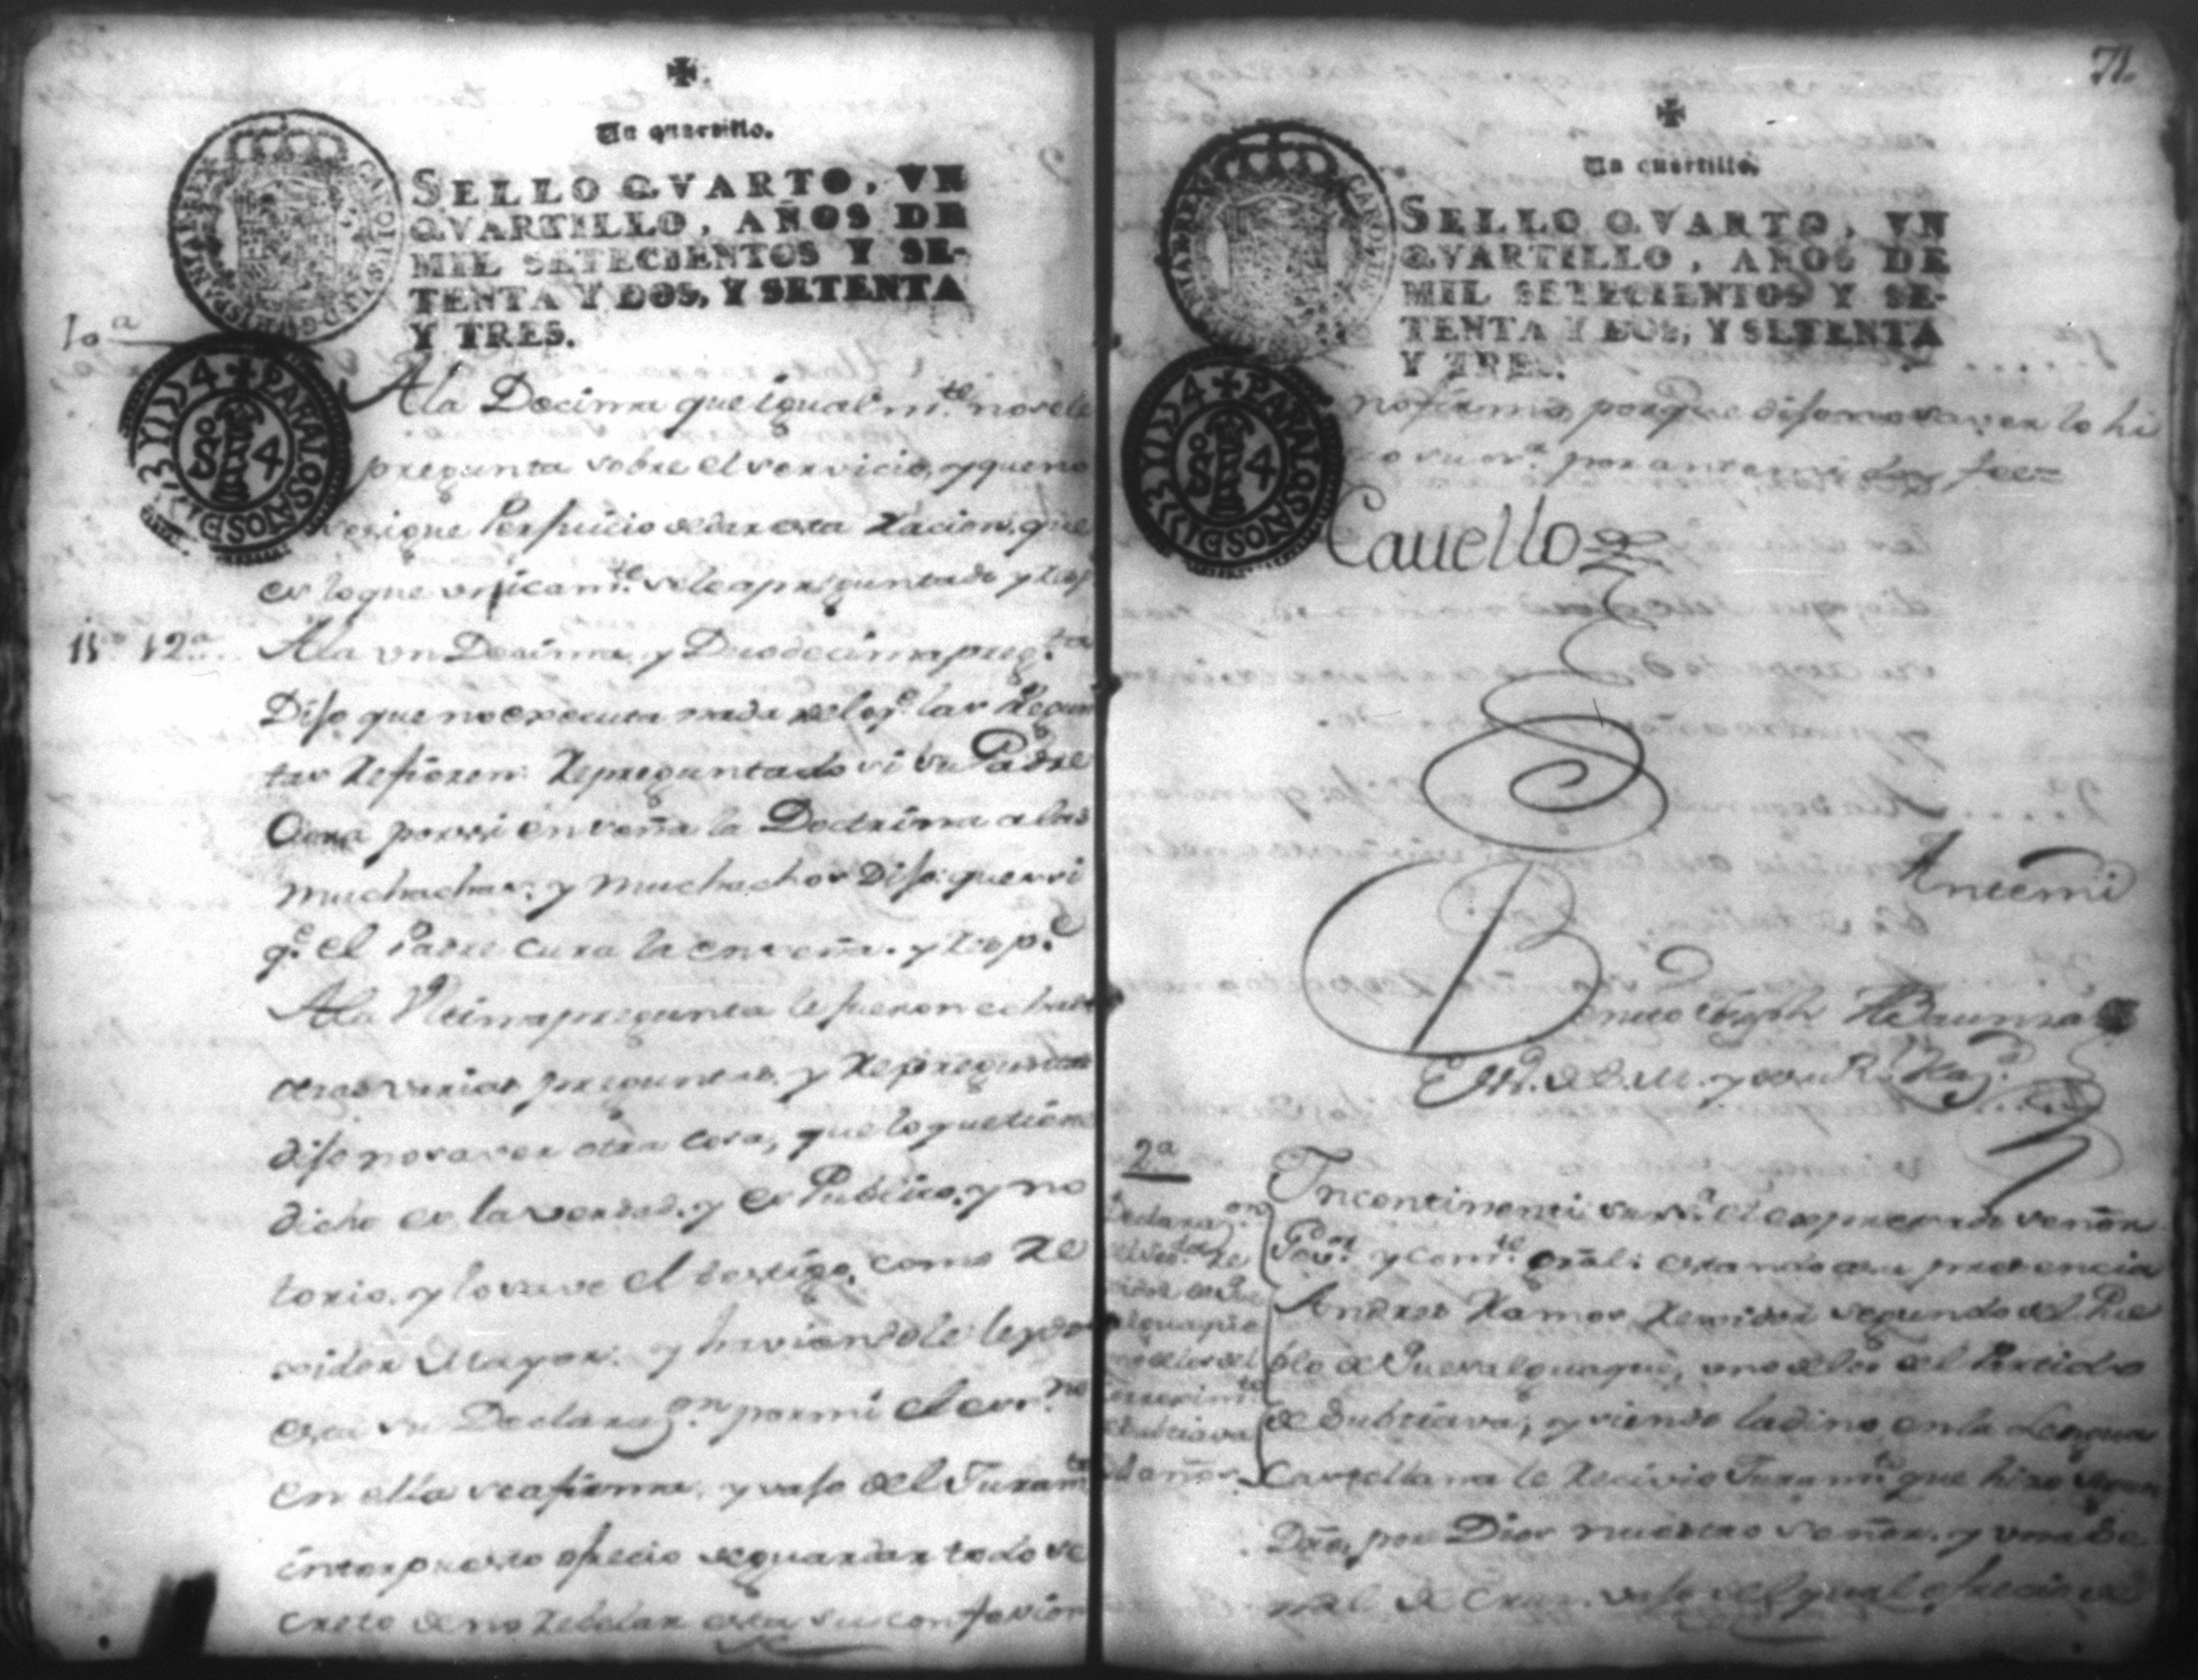 ✠
Un quartillo.
SELLO QVARTO, VN
QVARTILLO, AÑOS DE
MIL SETECIENTOS Y SE-
TENTA Y DOS, Y SETENTA
Y TRES.
PARA LOS AÑOS D
S.º 4
10ª
A la Decima que igualm.te no se le
pregunta sobre el servicio, y que no
se sigue Perjuicio de dar esta Racion, que
es lo que unicam.te se le a preguntado y resp
11ª 12ª
A la un Decima, y Duodecima preg.ta
Dijo que no executa nada de lo q.e las Pregun
tas Refieren. Repreguntado si su Padre
Cura por si enseña la Doctrina a las
muchachas, y muchachos Dijo: que si
q.e el Padre cura la enseña. y resp.e
A la Vltima pregunta le fueron echas
otras varias preguntas, y Repreguntas
dijo no saver otra cosa, que lo que tiene
dicho es la verdad, y es Publico, y no
torio, y lo save el testigo, como Re
xidor Mayor. y haviendole leydo
esta su Declaraz.on por mi el ess.no
en ella se afirma, y vajo del Juram.to
interpuesto ofrecio de guardar todo se
creto de no Rebelar esta su confesion
71.
✠
Un cuartillo.
SELLO QVARTO, VN
QVARTILLO, AÑOS DE
MIL SETECIENTOS Y SE-
TENTA Y DOS, Y SETENTA
Y TRES.
PARA LOS AÑOS D
S.º 4
no firmó, porque dijo no saver lo hi
zo su s.ria por ante mi doy fee=
Cavello
Antemi
Benito Joseph
Ess.no de S.M. y
2ª
Declaraz.on
Incontinenti su s.ria el expresado señor
Gov.dor y Com.te gral: estando en su presencia
Andres Ramos Rexidor segundo del Pue
blo de Puexalguaque, uno de los del Partido
de Subtiava, y siendo ladino en la Lengua
Castellana le Recivio Juram.to que hizo segun
Dro, por Dios nuestro señor, y una se
ñal de Cruz vajo del qual ofrecio de